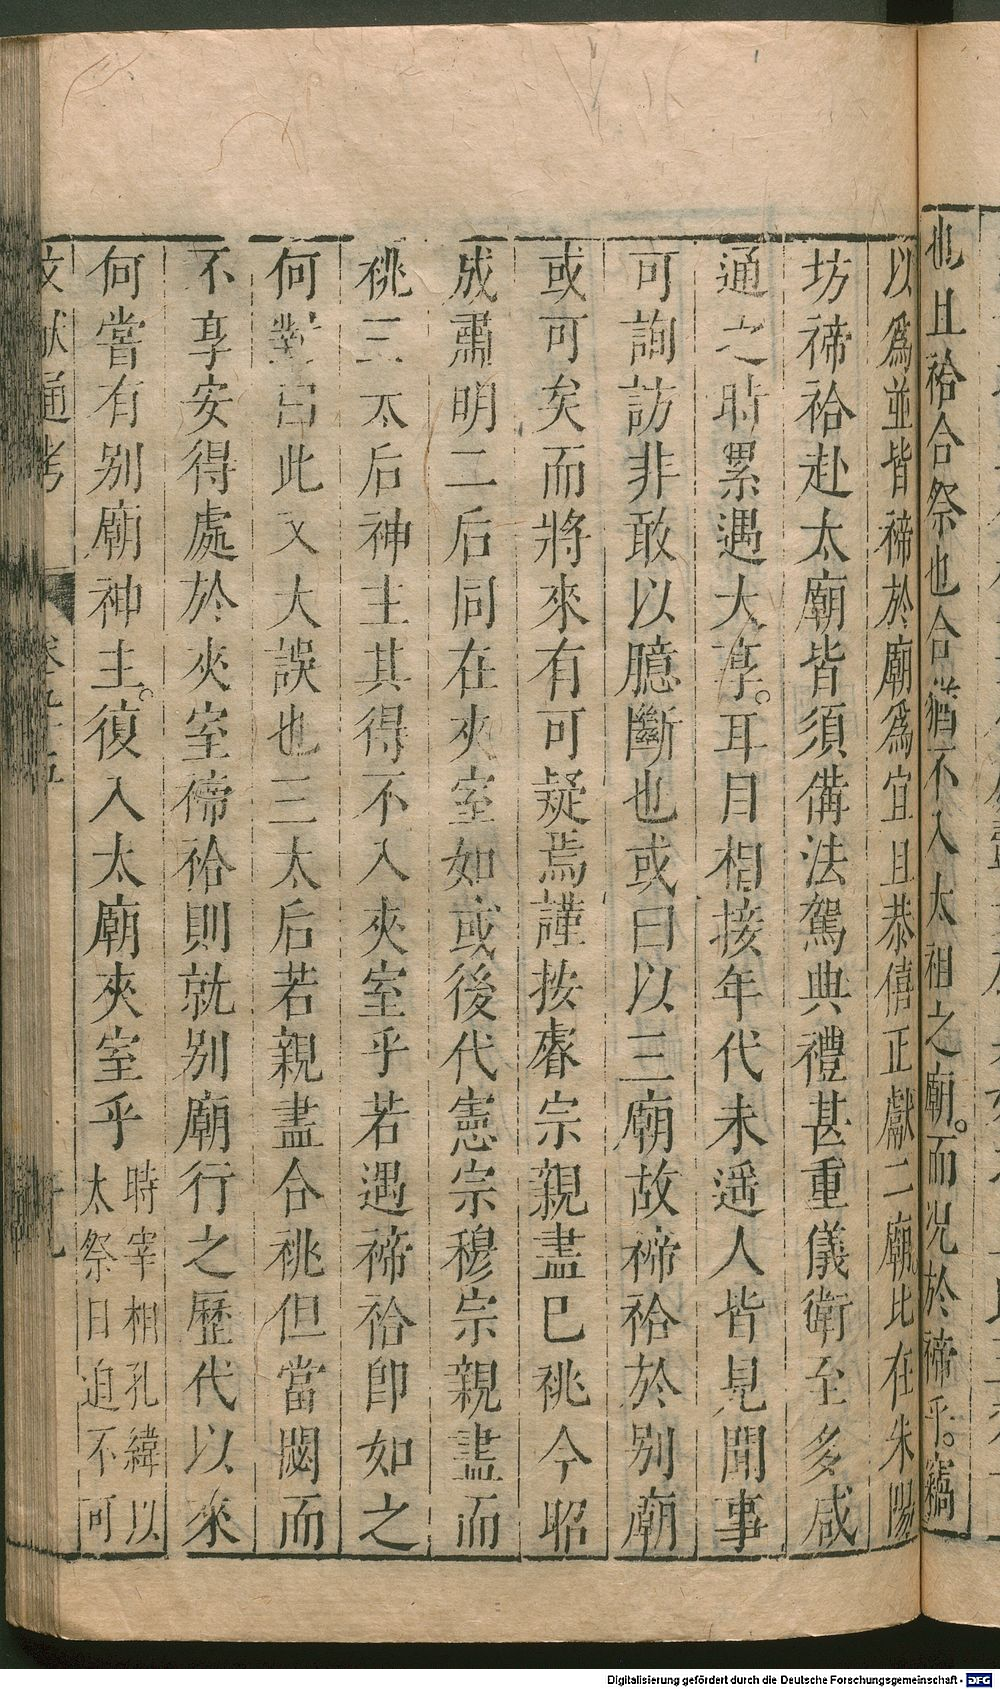 也且祫合祭也合猶不入太祖之廟。而况於禘乎。竊
以爲並皆禘於廟爲宜且恭僖正獻二廟比在朱陽
坊禘祫赴太廟皆須備法駕典禮甚重儀衛至多咸
通之時累遇大享。耳目相接年代未遥人皆見聞事
可詢訪非敢以臆斷也或曰以三廟故禘祫於别廟
或可矣而將來有可疑焉謹按睿宗親盡已祧今昭
成肅明二后同在夾室如或後代憲宗穆宗親盡而
祧三太后神主其得不入夾室乎若遇禘祫卽如之
何對曰此又大誤也三太后若親盡合祧但當閟而
不享安得處於夾室禘祫則就别廟行之歷代以來
何嘗有别廟神主。復入太廟夾室乎時宰相孔緯以
太祭日迫不可
文獻通考
卷九十五
Digitalisierung gefördert durch die Deutsche Forschungsgemeinschaft - DFG